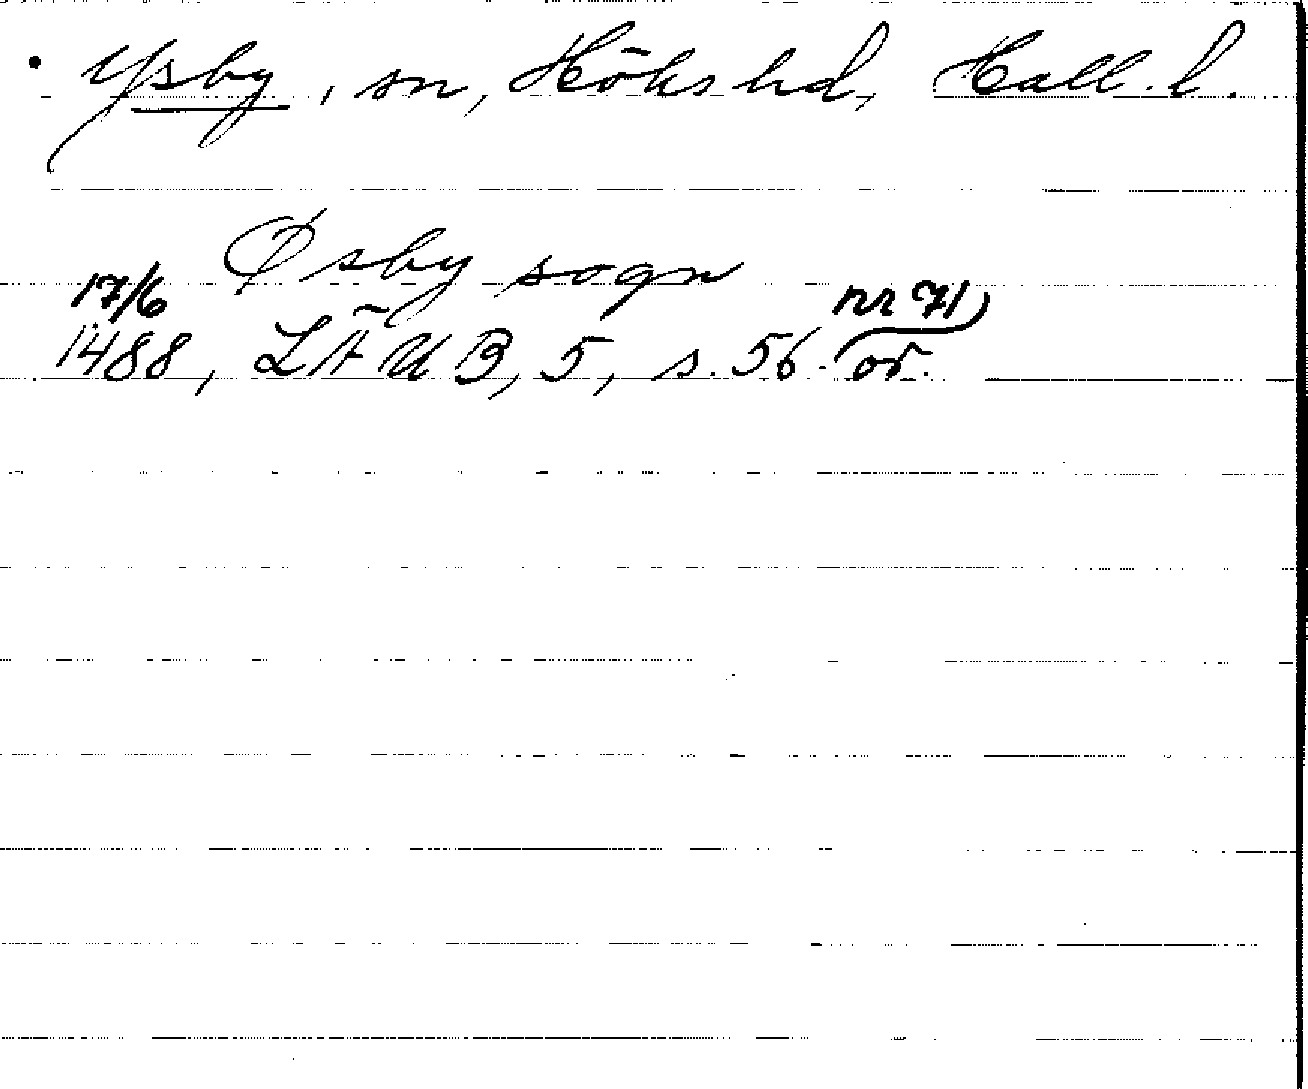 • Ysby, sn, Höks hd, Hall. l.
Øsby sogn
17/6 nr 71)
1488, LÄUB, 5, s. 56. or.